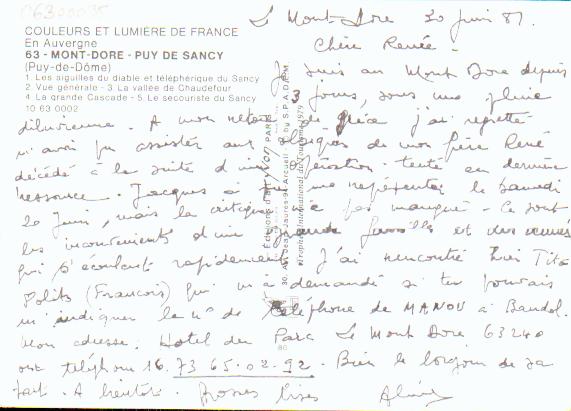 06300035
COULEURS ET LUMIÈRE DE FRANCE
En Auvergne
63 - MONT-DORE - PUY DE SANCY
(Puy-de-Dôme)
1. Les aiguilles du diable et téléphérique du Sancy
2. Vue générale - 3. La vallée de Chaudefour
4. La grande Cascade - 5. Le secouriste du Sancy
10 63 0002
Le Mont-Dore 30 juin 87.
Chère Renée -
Je suis au Mont Dore depuis
3 jours, sous une pluie
diluvienne. A mon retour de j'ai regretté
n'avoir pu assister aux obsèques de mon frère René
décédé à la suite d'une opération - tentée en dernière
ressource. Jacques a me représenter le samedi
20 juin, mais la critique a pas manqué - Ce sont
les inconvénients d'une grande famille et des
qui s'écoulent rapidement. J'ai rencontré hier Tito
Polito (François) qui m'a demandé si tu pouvais
m'indiquer le n° de téléphone de MANOU à Bandol.
Mon adresse. Hotel du Parc Le Mont Dore 63240
téléphone 16. 73 65.02.92 - Bien le bonjour de sa
part - A bientôt. Grosses bises